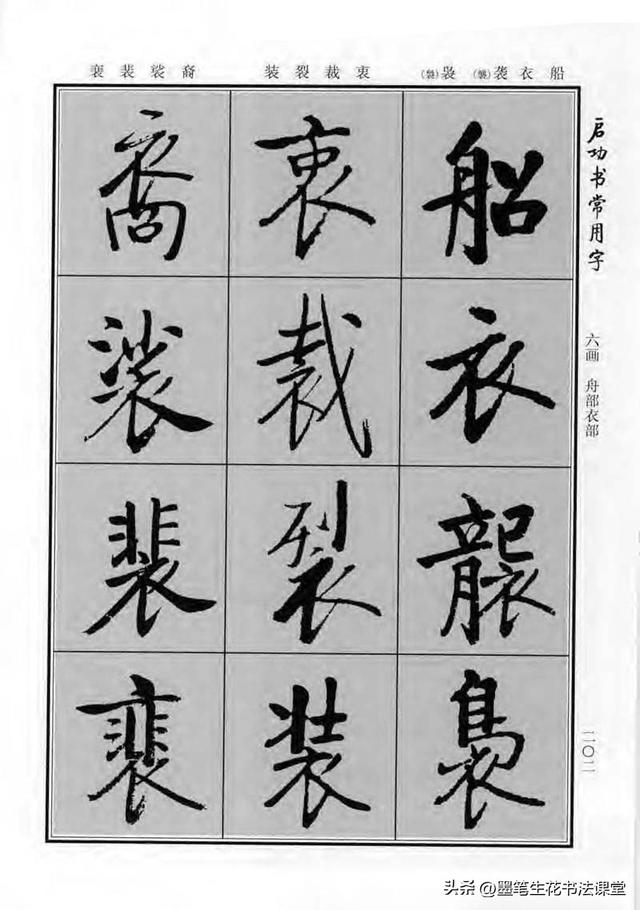 启功书常用字
六画 舟部衣部
二〇二
船衣袭(襲)袅(裊)
衷裁裂装
裔裟裴裵
船衣襲裊
衷裁裂装
裔裟裴裵
头条 @墨笔生花书法课堂